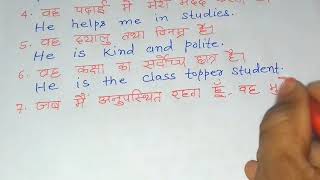 4. वह पढ़ाई में मेरी मदद करता
He helps me in studies.
5. वह दयालु तथा विनम्र है।
He is kind and polite.
6. वह कक्षा का सर्वोच्च छात्र है।
He is the class topper student.
7. जब मैं अनुपस्थित रहता हूँ, वह